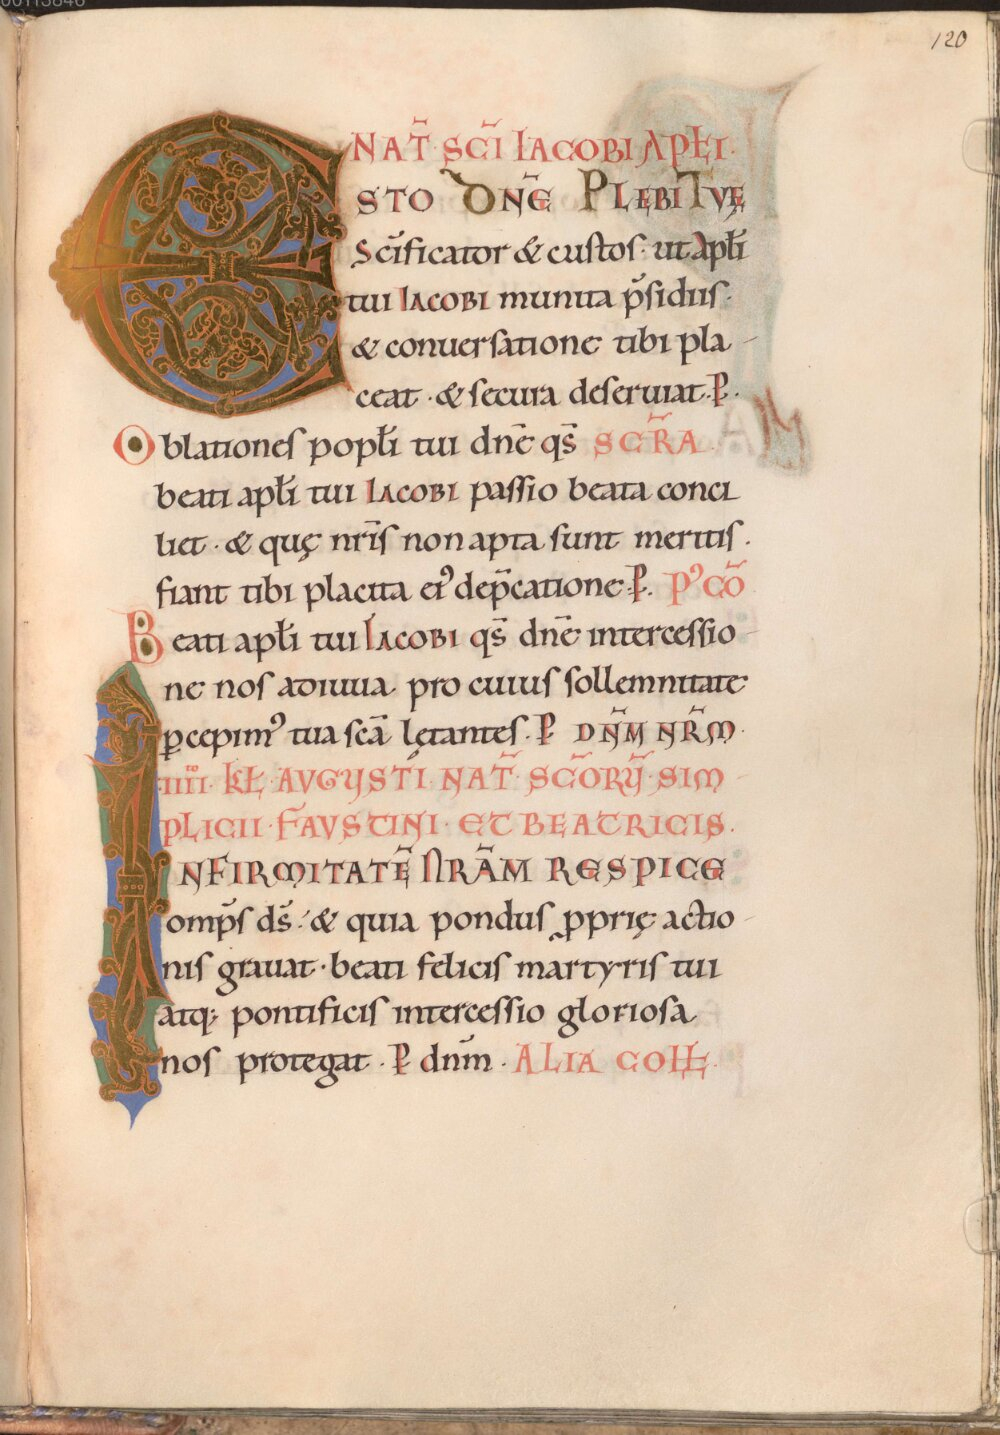 120
NAT̃ SC̃I IACOBI APŁI.
ESTO DÑE PLEBI TVĘ
Sc̃ificator & custos· ut apłi
tui IACOBI munita p̃sidiis·
& conuersatione tibi pla-
ceat· & secura deseruiat. P̱.
Oblationes popłi tui dñe qs̃ SECR̃A
beati apłi tui IACOBI passio beata conci
liet· & quę nr̃is non apta sunt meritis.
fiant tibi placita ei᾽ dep̃catione. P̱. P᾽CÕ
Beati apłi tui IACOBI qs̃ dñe intercessio-
ne nos adiuua pro cuius sollemnitate
ꝑcepim᾽ tua scã lętantes. P̱ DÑM NR̃M.
IIII· KŁ· AVGVSTI NAT̃· SC̃ORṼ· SIM-
PLICII· FAVSTINI· ET BEATRICIS.
INFIRMITATẼ NRÃM RESPICE
omp̃s ds̃· & quia pondus ꝓprię actio-
nis grauat· beati felicis martyris tui
atq; pontificis intercessio gloriosa
nos protegat. P̱ dnm̃. ALIA COLŁ.